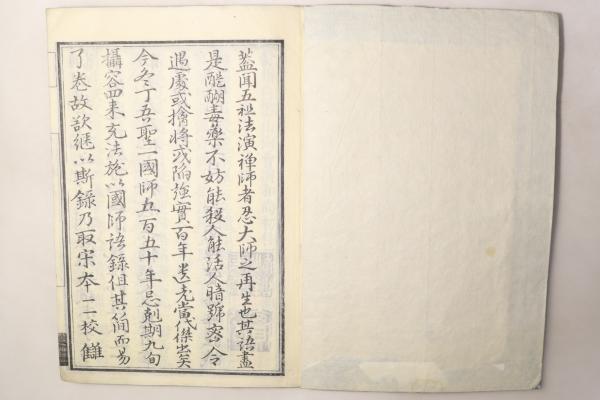 蓋聞五祖法演禅師者忍大師之再生也其語盡
是醍醐毒藥不妨能殺人能活人暗號密令
遇處或擒將或陷強實百年遺光當代傑出矣
今冬丁吾聖一國師五百五十年忌剋期九旬
攝容四来充法施以國師語錄但其簡而易
了卷故欲繼以斯錄乃取宋本二校讎